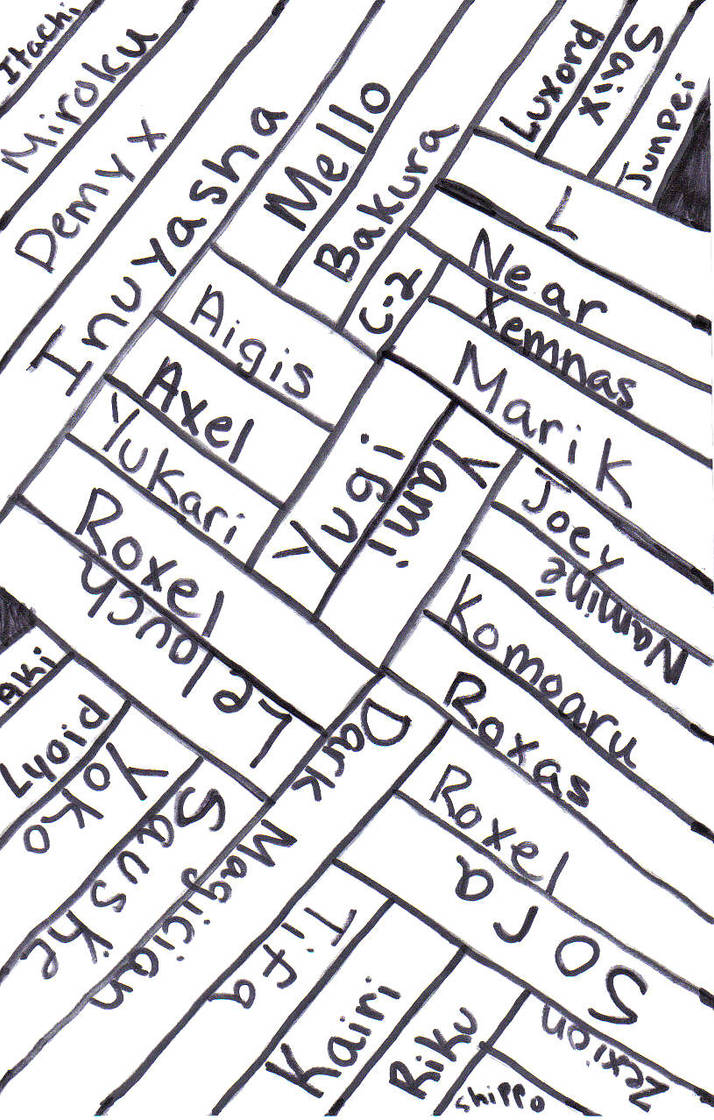 Itachi
Miroku
Demyx
Inuyasha
Mello
Bakura
C.2
Luxord
Saix
Junpei
L
Near
Xemnas
Marik
Aigis
Axel
Yukari
Roxel
Lelouch
Yugi
Yami
Joey
Naminé
Komoaru
Roxas
Roxel
Sora
Aki
Lyoid
Yoko
Sauske
Dark Magician
Tifa
Kairi
Riku
Shippo
Zexion